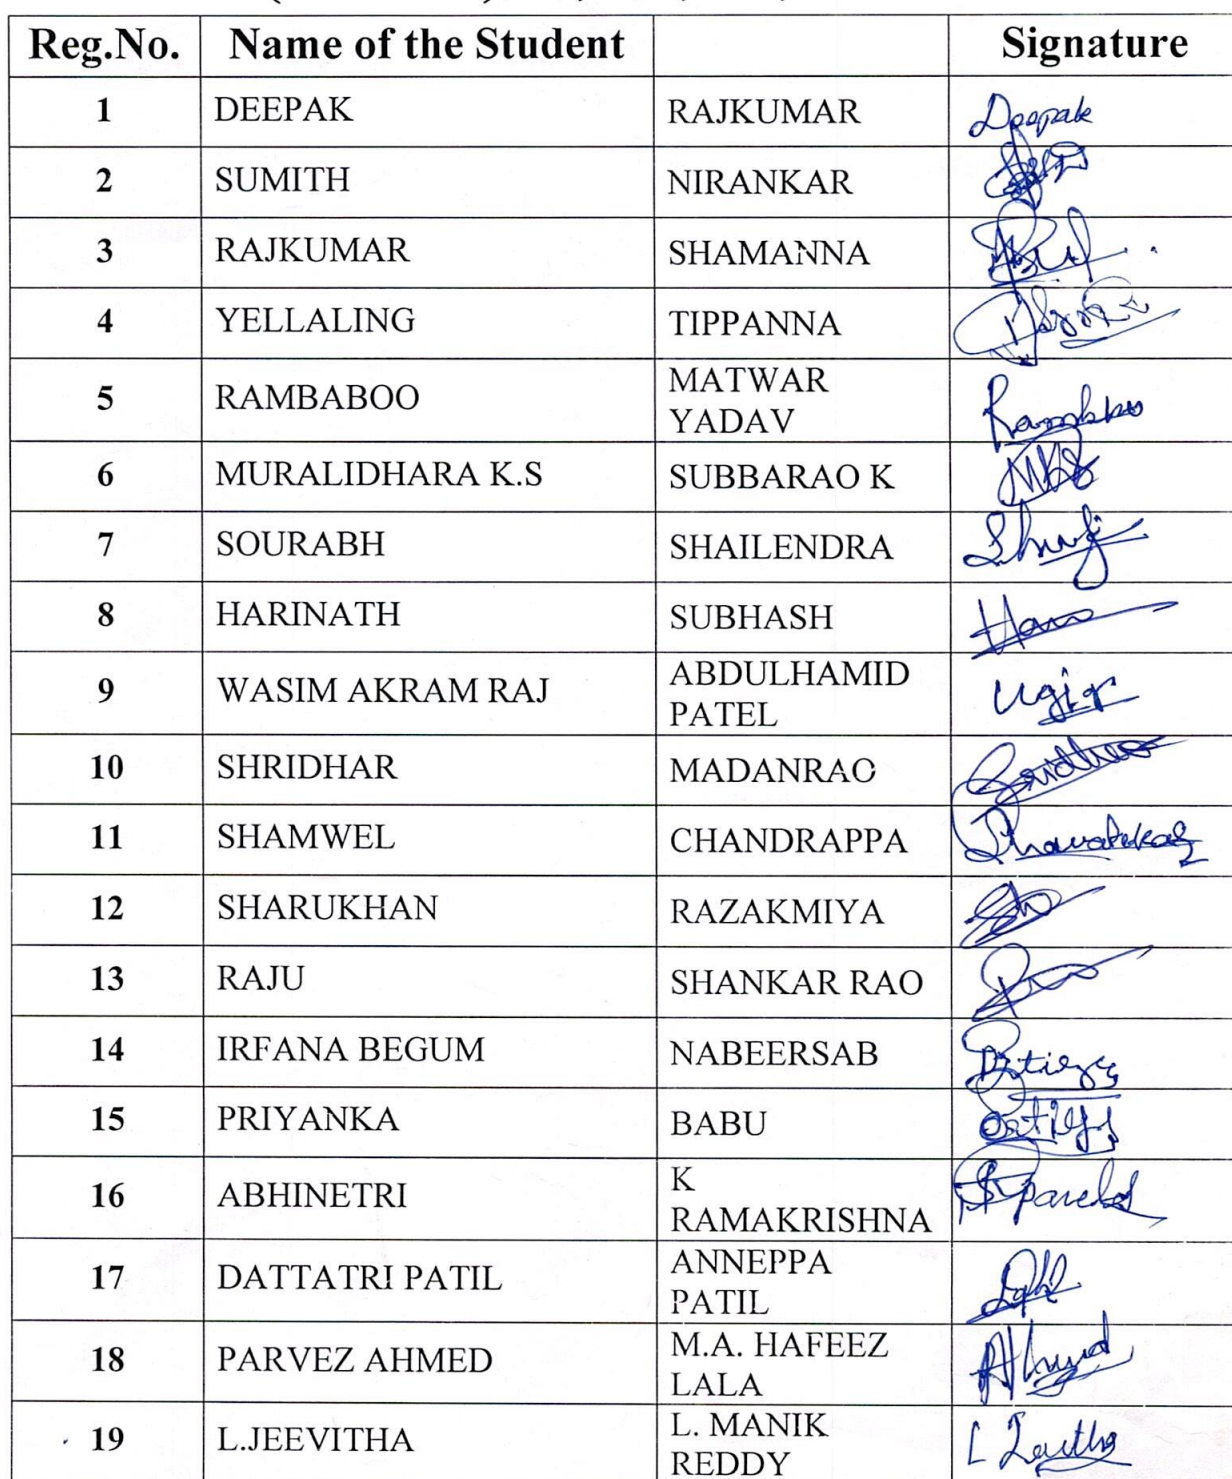 Reg.No. Name of the Student Signature
1 DEEPAK RAJKUMAR Deepak
2 SUMITH NIRANKAR
3 RAJKUMAR SHAMANNA
4 YELLALING TIPPANNA
5 RAMBABOO MATWAR
YADAV
6 MURALIDHARA K.S SUBBARAO K MKS
7 SOURABH SHAILENDRA
8 HARINATH SUBHASH
9 WASIM AKRAM RAJ ABDULHAMID
PATEL
10 SHRIDHAR MADANRAO
11 SHAMWEL CHANDRAPPA
12 SHARUKHAN RAZAKMIYA
13 RAJU SHANKAR RAO
14 IRFANA BEGUM NABEERSAB
15 PRIYANKA BABU
16 ABHINETRI K
RAMAKRISHNA
17 DATTATRI PATIL ANNEPPA
PATIL
18 PARVEZ AHMED M.A. HAFEEZ
LALA
19 L.JEEVITHA L. MANIK
REDDY